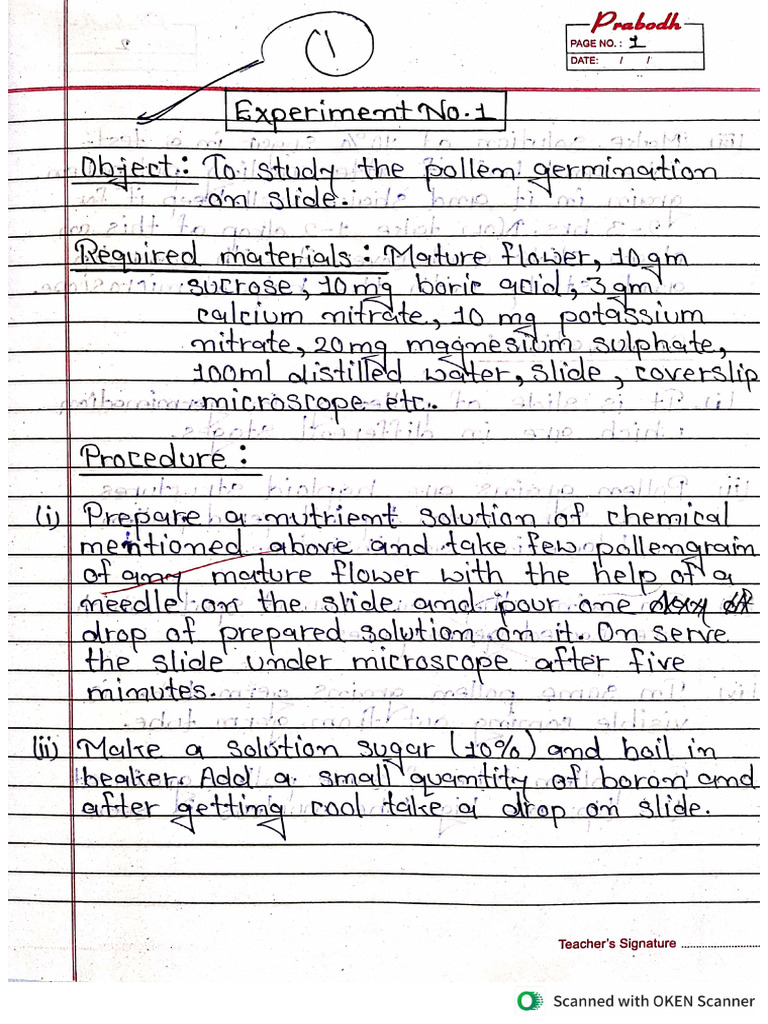 1
Prabodh
PAGE NO.: 1
DATE: / /
Experiment No. 1
Object: To study the pollen germination
on slide.
Required materials: Mature flower, 10 gm
sucrose, 10 mg boric acid, 3 gm
calcium nitrate, 10 mg potassium
nitrate, 20 mg magnesium sulphate,
100ml distilled water, slide, coverslip
microscope etc.
Procedure:
(i) Prepare a nutrient solution of chemical
mentioned above and take few pollengrain
of any mature flower with the help of a
needle on the slide and pour one
drop of prepared solution on it. On serve
the slide under microscope after five
mimutes.
(ii) Make a solution sugar (10%) and boil in
beaker. Add a small quantity of boron and
after getting cool take a drop on slide.
Teacher's Signature ....................
Scanned with OKEN Scanner